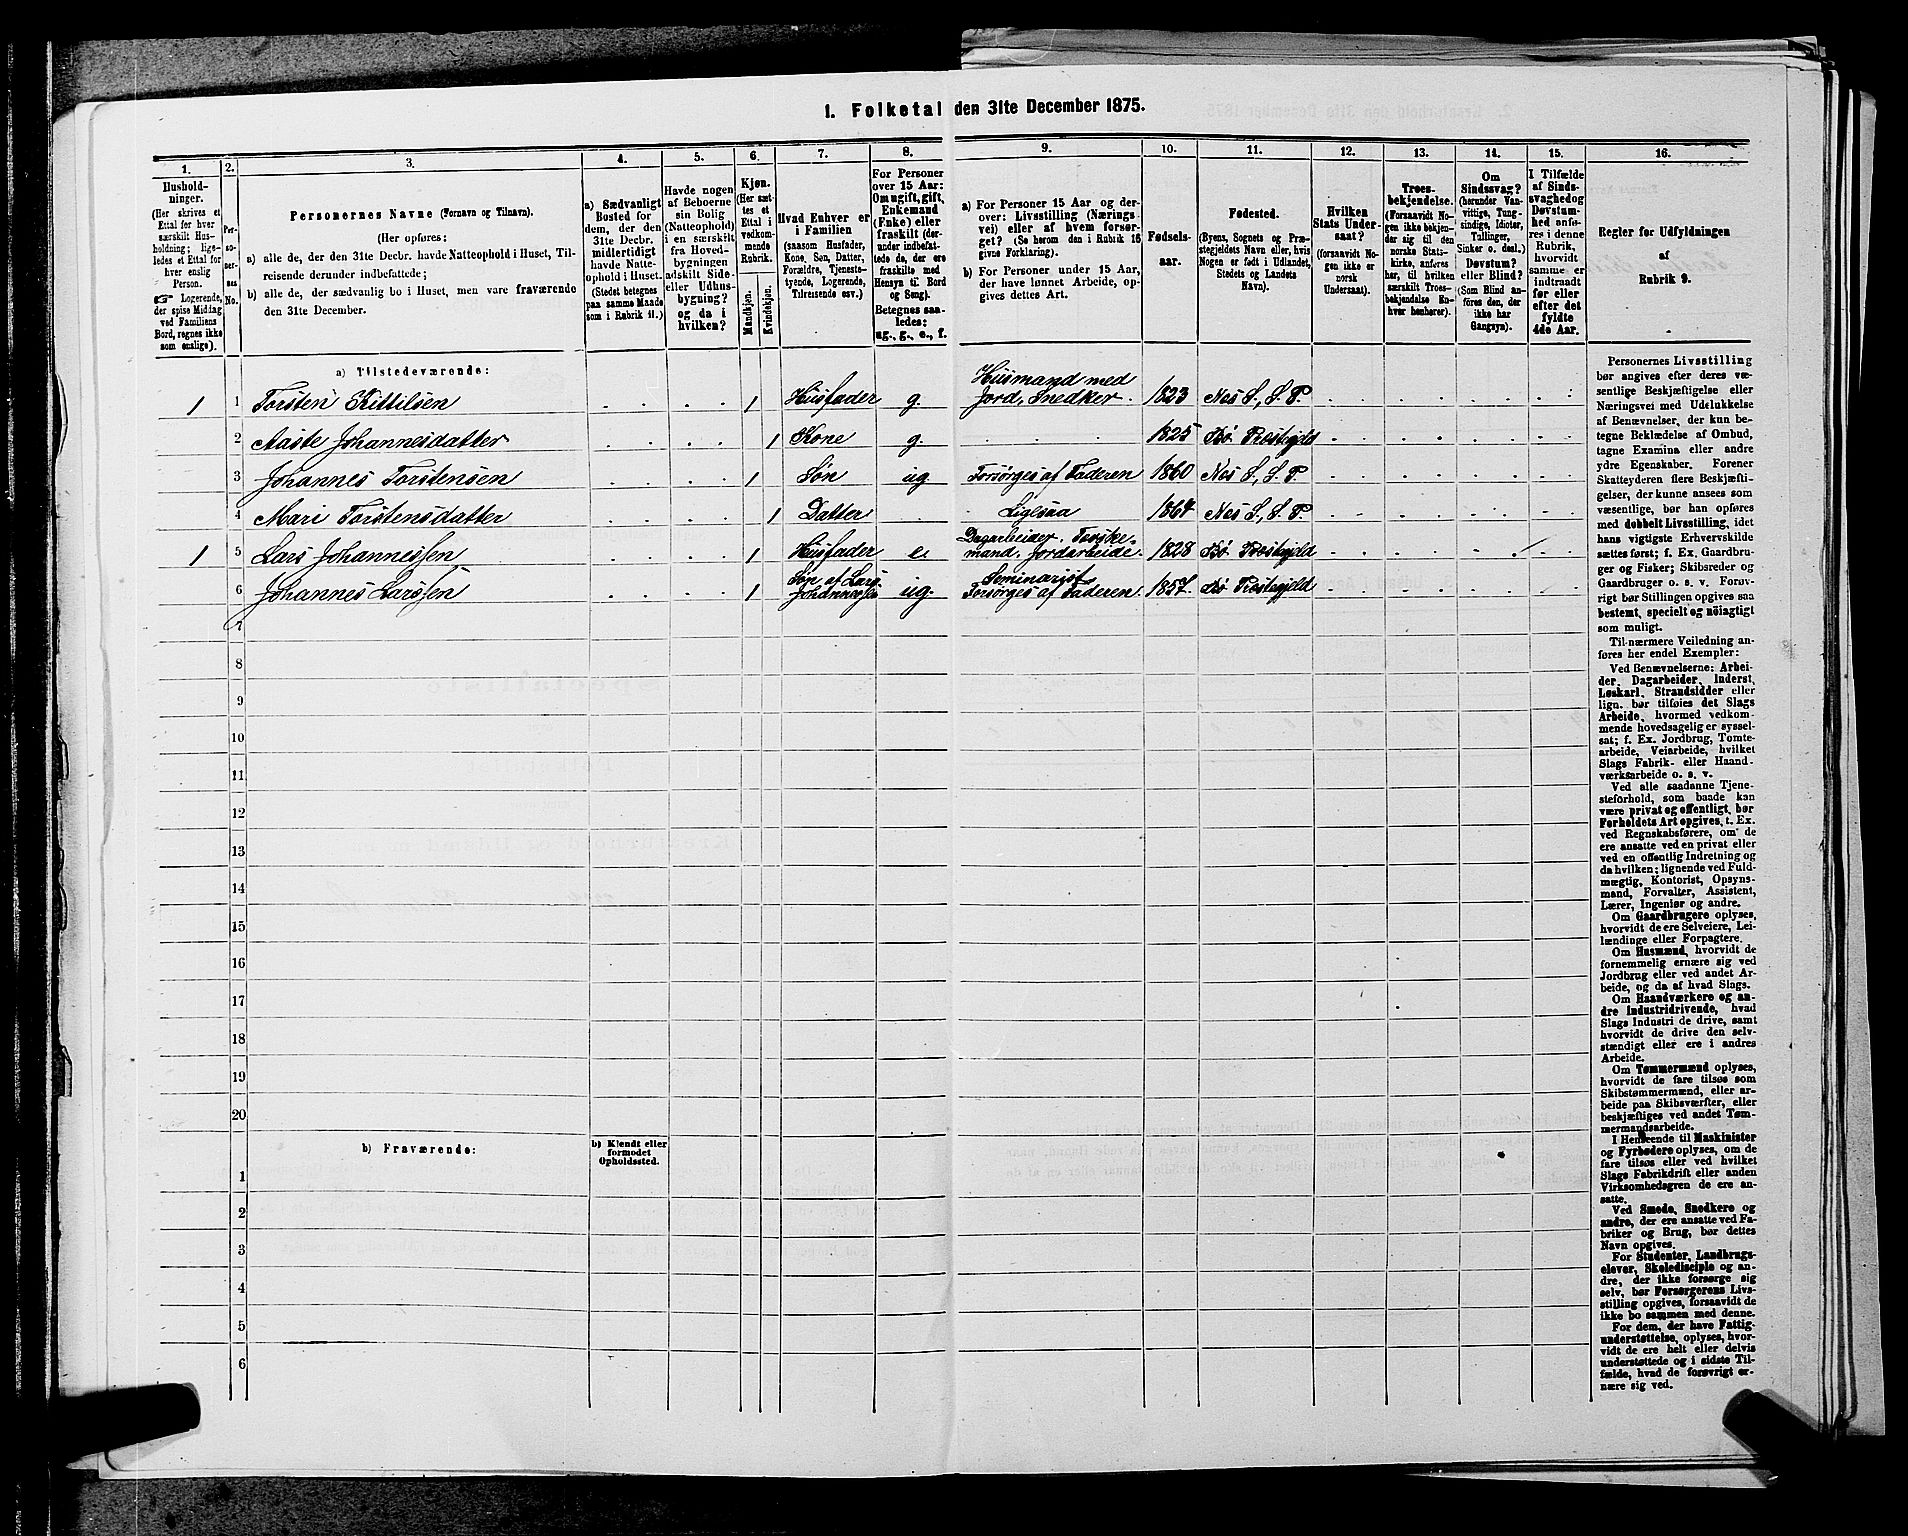 1. Folketal den 31te December 1875.
1.
2.
3.
4.
5.
6.
7.
8.
9.
10.
11.
12.
13.
14.
15.
16.
Hushold-
ninger.
(Her skrives et
Ettal for hver
særskilt Hus-
holdning; lige-
ledes et Ettal for
hver enslig
Person.
☞ Logerende,
der spise Middag
ved Familiens
Bord, regnes ikke
som enslige).
Per-
so-
ner-
nes
No.
Personernes Navne (Fornavn og Tilnavn).
(Her opføres:
a) alle de, der den 31te Decbr. havde Natteophold i Huset, Til-
reisende derunder indbefattede;
b) alle de, der sædvanlig bo i Huset, men vare fraværende
den 31te December.
a) Sædvanligt
Bosted for
dem, der den
31te Decbr.
midlertidigt
havde Natte-
ophold i Huset.
(Stedet betegnes
paa samme Maade
som i Rubrik 11.)
Havde nogen
af Beboerne
sin Bolig
(Natteophold)
i en særskilt
fra Hoved-
bygningen
adskilt Side-
eller Udhus-
bygning?
og da i
hvilken?
Kjøn.
(Her sæt-
tes et
Ettal i
vedkom-
mende
Rubrik.
Mandkjøn.
Kvindekjøn.
Hvad Enhver er
i Familien
(saasom Husfader,
Kone, Søn, Datter,
Forældre, Tjeneste-
tyende, Logerende,
Tilreisende osv.)
For Personer
over 15 Aar:
Om ugift, gift,
Enkemand
(Enke) eller
fraskilt (der-
under indbefat-
tede de, der ere
fraskilte med
Hensyn til Bord
og Seng).
Betegnes saa-
ledes:
ug., g., e., f.
a) For Personer 15 Aar og der-
over: Livsstilling (Nærings-
vei) eller af hvem forsør-
get? (Se herom den i Rubrik 16
givne Forklaring).
b) For Personer under 15 Aar,
der have lønnet Arbeide, op-
gives dettes Art.
Fødsels-
aar.
Fødested.
(Byens, Sognets og Præ-
stegjeldets Navn eller, hvis
Nogen er født i Udlandet,
Stedets og Landets
Navn).
Hvilken
Stats Under-
saat?
(forsaavidt No-
gen ikke er
norsk
Undersaat).
Troes-
bekjendelse.
(Forsaavidt No-
gen ikke bekjen-
der sig til den
norske Stats-
kirke, anføres
her, til hvilken
særskilt Troes-
bekjendelse En-
hver henhører).
Om
Sindssvag?
(herunder Van-
vittige, Tung-
sindige, Idioter,
Tullinger,
Sinker o. desl.)
Døvstum?
eller Blind?
(Som Blind an-
føres den, der
ikke har
Gangsyn).
I Tilfælde
af Sinds-
svaghed og
Døvstum-
hed anfø-
res i denne
Rubrik,
hvorvidt
samme er
indtraadt
før eller
efter det
fyldte
4de Aar.
Regler for Udfyldningen
af
Rubrik 9.
a) Tilstedeværende:
1 1 Torsten Kittilsen 1 Husfader g. Husmand med
Jord, Snedker. 1823 Nes S., S. P.
2 Aaste Johannesdatter 1 Kone g. 1825 Bø Præstegjeld
3 Johannes Torstensen 1 Søn ug Forsørges af Faderen 1860 Nes S., S. P.
4 Mari Torstensdatter 1 Datter Ligesaa 1864 Nes S., S. P.
1 5 Lars Johannessen 1 Husfader e Dagarbeider,
mand. Jordarbeide. 1828 Bø Præstegjeld
6 Johannes Larssen 1 Søn af Lars
Johannessen ug. Seminarist
Forsørges af Faderen. 1857. Bø Præstegjeld
7
8
9
10
11
12
13
14
15
16
17
18
19
20
b) Fraværende:
b) Kjendt eller
formodet
Opholdssted.
1
2
3
4
5
6
Personernes Livsstilling
bør angives efter deres væ-
sentlige Beskjæftigelse eller
Næringsvei med Udelukkelse
af Benævnelser, der kun be-
tegne Beklædelse af Ombud,
tagne Examina eller andre
ydre Egenskaber. Forener
Skatteyderen flere Beskjæfti-
gelser, der kunne ansees som
væsentlige, bør han opføres
med dobbelt Livsstilling, idet
hans vigtigste Erhvervskilde
sættes først; f. Ex. Gaardbru-
ger og Fisker; Skibsreder og
Gaardbruger o. s. v. Forøv-
rigt bør Stillingen opgives saa
bestemt, specielt og nøiagtigt
som muligt.
Til nærmere Veiledning an-
føres her endel Exempler:
Ved Benævnelserne: Arbei-
der, Dagarbeider, Inderst,
Løskarl, Strandsidder eller
lign. bør tilføies det Slags
Arbeide, hvormed vedkom-
mende hovedsagelig er syssel-
sat; f. Ex. Jordbrug, Tomte-
arbeide, Veiarbeide, hvilket
Slags Fabrik- eller Haand-
værksarbeide o. s. v.
Ved alle saadanne Tjene-
steforhold, som baade kan
være privat og offentligt, bør
Forholdets Art opgives, t. Ex.
ved Regnskabsførere, om de
ere ansatte ved en privat eller
ved en offentlig Indretning og
da hvilken; lignende ved Fuld-
mægtig, Kontorist, Opsyns-
mand, Forvalter, Assistent,
Lærer, Ingeniør og andre.
Om Gaardbrugere oplyses,
hvorvidt de ere Selveiere, Lei-
lændinge eller Forpagtere.
Om Husmænd, hvorvidt de
fornemmelig ernære sig ved
Jordbrug eller ved andet Ar-
beide, og da af hvad Slags.
Om Haandværkere og an-
dre Industridrivende, hvad
Slags Industri de drive, samt
hvorvidt de drive den selv-
stændigt eller ere i andres
Arbeide.
Om Tømmermænd oplyses,
hvorvidt de fare tilsøs som
Skibstømmermænd, eller ar-
beide paa Skibsværfter, eller
beskjæftiges ved andet Tøm-
mermandsarbeide.
I Henseende til Maskinister
og Fyrbødere oplyses, om de
fare tilsøs eller ved hvilket
Slags Fabrikdrift eller anden
Virksomhedsgren de ere an-
satte.
Ved Smede, Snedkere og
andre, der ere ansatte ved Fa-
briker og Brug, bør dettes
Navn opgives.
For Studenter, Landbrugs-
elever, Skoledisciple og an-
dre, der ikke forsørge sig
selv, bør Forsørgerens Livs-
stilling opgives, forsaavidt de
ikke bo sammen med denne.
For dem, der have Fattig-
understøttelse, oplyses, hvor-
vidt de ere helt eller delvis
understøttede og i sidste Til-
fælde, hvad de forøvrigt er-
nære sig ved.